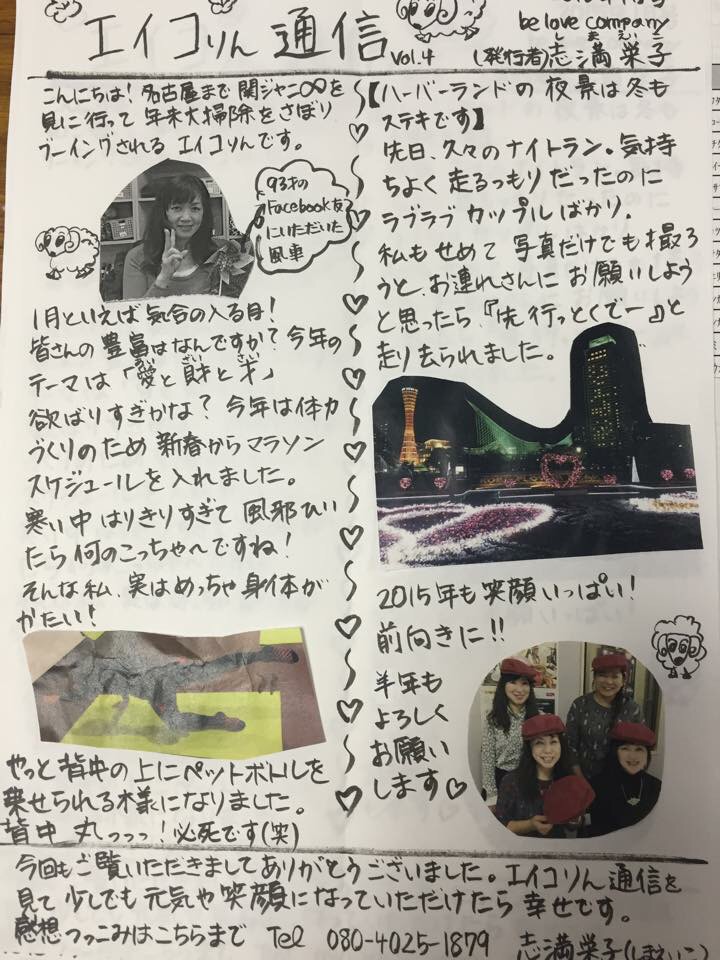 エイコりん通信 Vol.4
be love company
し ま えい こ
(発行者)志満栄子
こんにちは! 名古屋まで関ジャニ∞を
見に行って年末大掃除をさぼり
ブーイングされる エイコりんです。
93才の
Facebook友
にいただいた
風車
1月といえば気合の入る月!
皆さんの豊富はなんですか? 今年の
テーマは「愛と財と才」
あい ざい さい
欲ばりすぎかな? 今年は体力
づくりのため新春からマラソン
スケジュールを入れました。
寒い中はりきりすぎて風邪ひい
たら何のこっちゃへですね!
そんな私、実はめっちゃ身体が
かたい!
やっと背中の上にペットボトルを
乗せられる様になりました。
背中 丸っっっ!必死です(笑)
【ハーバーランドの夜景は冬も
ステキです】
先日、久々のナイトラン。気持
ちよく走るつもりだったのに
ラブラブカップルばかり。
私もせめて写真だけでも撮ろ
うと、お連れさんにお願いしよう
と思ったら、『先行っとくでー』と
走り去られました。
2015年も笑顔いっぱい!
前向きに!!
羊年も
よろしく
お願い
します♡
今回もご覧いただきましてありがとうございました。エイコりん通信を
見て少しでも元気や笑顔になっていただけたら幸せです。
感想つっこみはこちらまで Tel 080-4025-1879 志満栄子(しまえいこ)